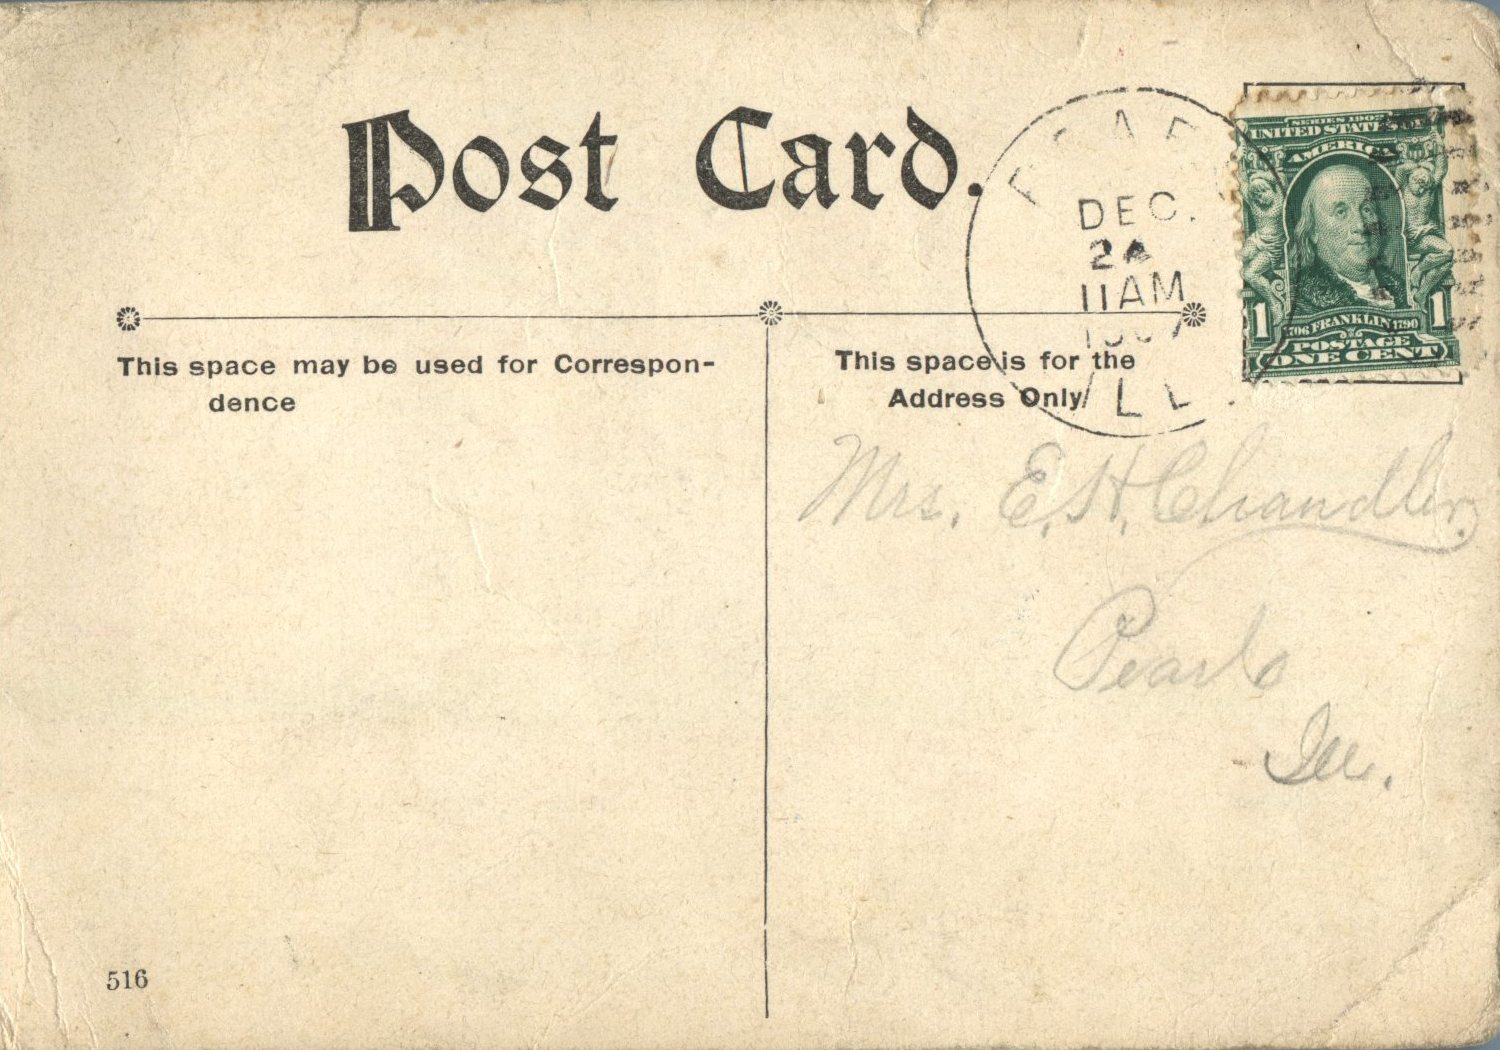 Post Card.
PEARL
DEC.
24
11 AM
1907
ILL.
SERIES 1902
UNITED STATES OF
AMERICA
1706 FRANKLIN 1790
1 1
POSTAGE
ONE CENT
This space may be used for Correspon-
dence
This space is for the
Address Only
Mrs. E. H. Chandler.
Pearl
Ill.
516